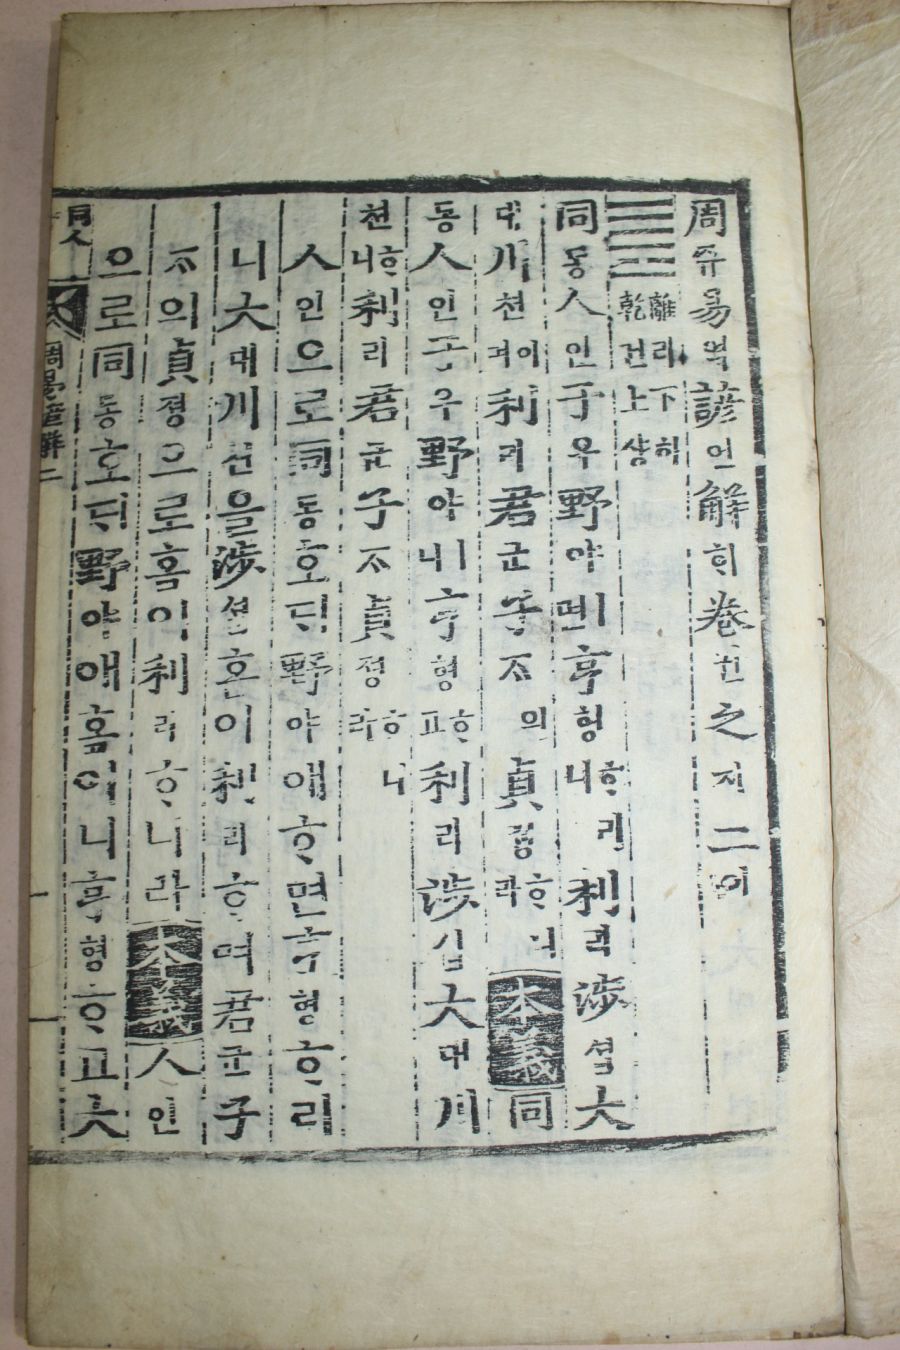 周쥬易역諺언解ᄒᆡ卷권之지二이
離리下하 乾건上샹
同동人인于우野야면亨형ᄒᆞ니리利리涉셥大
대川쳔이며利리君군子ᄌᆞ의貞졍ᄒᆞ니라 本義 同
동人인于우野야니亨형ᄒᆞ고利리涉셥大대川
쳔ᄒᆞ니利리君군子ᄌᆞ貞졍ᄒᆞ니라
人인으로同동호ᄃᆡ野야애ᄒᆞ면亨형ᄒᆞ리
니大대川쳔을涉셥홈이利리ᄒᆞ며君군子
ᄌᆞ의貞졍으로홈이利리ᄒᆞ니라 本義 人인
으로同동호ᄃᆡ野야애홈이니亨형ᄒᆞ고大
同人
周易諺解二